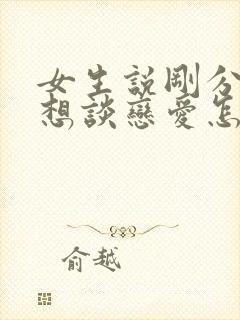 女生説剛分
想談戀愛怎
俞越